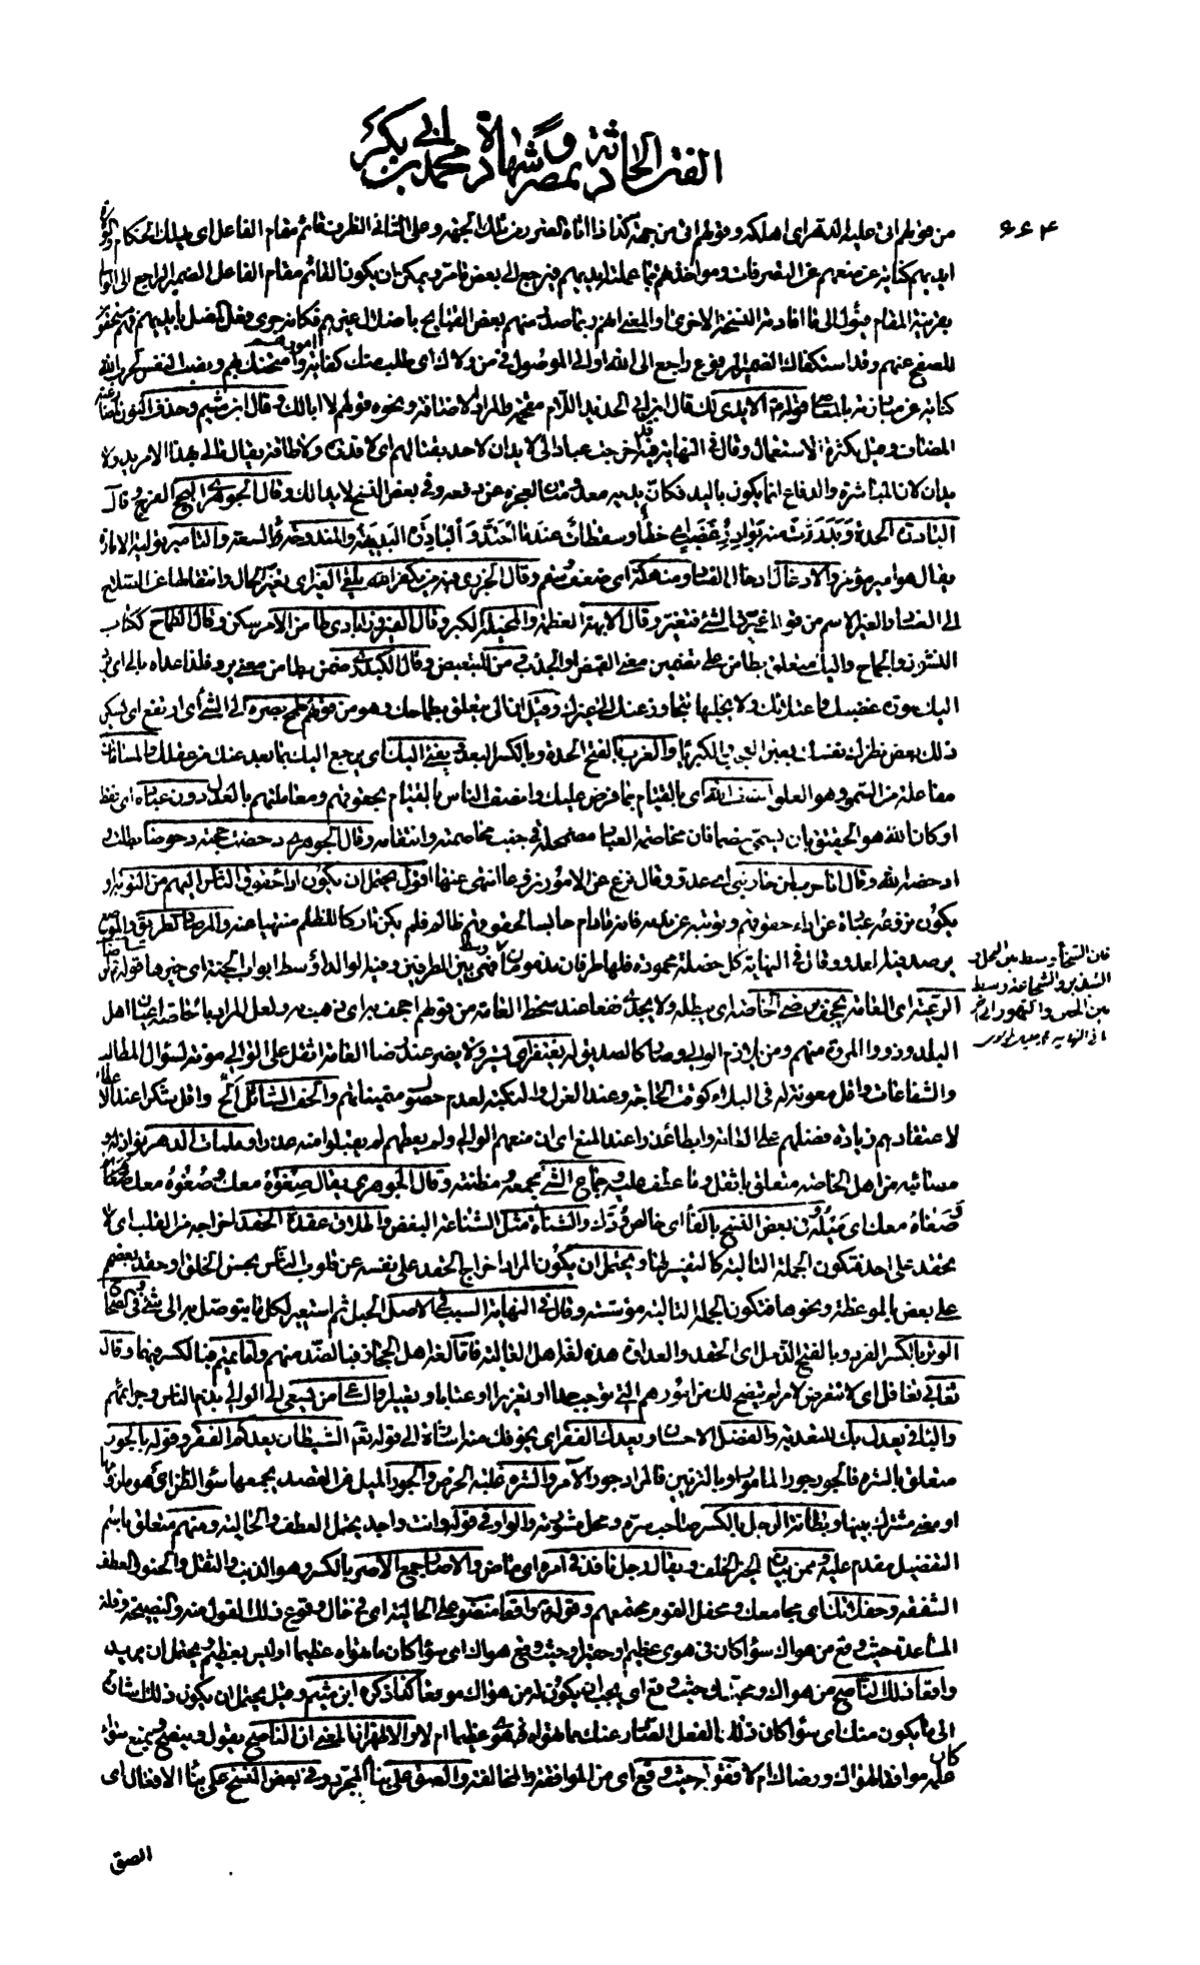 الفتن الحادثة بمصر و شهادة محمد بن ابى بكر
۶۶۴
من قولهم اتى عليه الدهر اى اهلكه وقولهم اتى من جهة كذا اذا اتاه الضرر من تلك الجهة وعلى الثانى الظرف قائم مقام الفاعل اى يهلك الحكام
ايديهم كناية عن منعهم عن التصرفات ومواخذتهم بما عملته ايديهم فيرجع الى بعض ما مر ويمكن ان يكون القائم مقام الفاعل الضمير الراجع الى الولاة
بقرينة المقام فيؤل الى ما افادته النسخة الاخرى او المعنى انهم ربما صدر منهم بعض القبايح باضلال غيرهم فكانه جرى بفعل المضل بايديهم فهم مستحقون
للصفح عنهم وقد استكفاك الضمير المرفوع راجع الى الله او الى الموصول فى من ولاك اى طلب منك كفاية امورهم وامتحنك بهم ونصب النفس لحرب الله
كناية عن مبارزته بالمعاصى قوله فانه لا يدى لك قال ابن ابى الحديد اللام مقحمة والمراد الاضافة ونحوه قولهم لا ابا لك وقال ابن ميثم وحذف النون
المضاف وقيل لكثرة الاستعمال وقال فى النهاية فيه قد اخرجت عبادا لى لا يدان لاحد بقتالهم اى لا قدرة ولا طاقة يقال مالى بهذا الامر يد ولا
يدان لان المباشرة والدفاع انما يكون باليد فكان يديه معدومتان لعجزه عن دفعه وفى بعض النسخ لا يدا لك وقال الجوهرى البجح الفرح وقال
البادرة الحدة وبدرت منه بوادر غضب اى خطأ وسقطات عندما احتد والبادرة البديهة والمندوحة السعة والتامير تولية الامارة
يقال هو امير مؤمر والادغال ادخال الفساد ومنهكة اى ضعف وسقم وقال الجزرى فيه من يكفر الله يلق الغير اى تغير الحال وانتقالها عن الصلاح
الى الفساد والغير الاسم من قولك غيرت الشئ فتغير وقال الابهة العظمة والمخيلة الكبر وقال الفيروزآبادى طامن الامر سكن وقال الطماح ككتاب
النشوز والجماح والباء متعلق بطامن على تضمين معنى القبض او الجذب ومن للتبعيض وقال الكيدرى ضمن يطامن معنى يرد فلذا عداه بالى اى يرد
اليك سورة غضبك واعتزازك ولا يخليها تتجاوز عنك الى غيرك وقيل الى يتعلق بطماحك وهو من قولهم طمح بصره الى الشئ اى ارتفع اى يسكن
ذلك بعض نظرك نفسك بعين العجب والكبرياء والغرب بالفتح الحدة وبالكسر البعد ويفئ اليك اى يرجع اليك بما بعد عنك من عقلك والمساماة
مفاعلة من السمو وهو العلو انصف الله اى بالقيام بما فرض عليك وانصف الناس بالقيام بحقوقهم ومعاملتهم بالعدل دون عباده اى فقط
او كان الله هو الحقيق بان يسمى خصما فان مخاصمة العباد مضمحلة فى جنب مخاصمته وانتقامه وقال الجوهرى دحضت حجته دحوضا بطلت و
ادحضه الله وقال انا حرب لمن حاربنى اى عدو وقال نزع عن الامور نزوعا انتهى عنها اقول يحتمل ان يكون اداء حقوق الناس اليهم من التوبة او
يكون نزوعه عبارة عن اداء حقوقهم وتوبته عن ظلمه فانه مادام حابسا لحقوقهم ظالم فلم يكن تاركا للظلم منتهيا عنه والمرصاد الطريق والموضع
يرصد فيه العدو وقال فى النهاية كل خصلة محمودة فلها طرفان مذمومان فهى وسط بين الطرفين وفيه الوالد اوسط ابواب الجنة اى خيرها قوله
الرعية اى العامة يجحف برضى الخاصة اى يبطله ولا يجدى نفعا عند سخط العامة من قولهم اجحف به اى ذهب به ولعل المراد بالخاصة اعيان اهل
البلد وذووا المروة منهم ومن يلازم الوالى وصار كالصديق له يغتفر اى يستر ولا يضر عند رضا العامة اثقل على الوالى مؤنة لسؤال المطالب
والشفاعات واقل معونة له فى البلاء كوقت الحاجة وعند العزل والنكبة لعدم حصول متمنياتهم والحف السائل الح واقل شكرا عند الاعطاء
لاعتقادهم زيادة فضلهم على العامة وابطا عذرا عند المنع اى ان منعهم الوالى ولم يعطهم لم يقبلوا منه عذرا وملمات الدهر نوازله و
مصائبه من اهل الخاصة متعلق باثقل وما عطف عليه جماع الشئ مجمعه ومظنته وقال الجوهرى يقال صغوه معك وصغوه معك
وصغاه معك اى ميله وفى بعض النسخ بالفاء اى خالص ودك والشناة مثل الشناعة البغض واطلاق عقدة الحقد اخراجه من القلب اى لا
تحقد على احد فتكون الجملة التالية كالتفسير لها ويحتمل ان يكون المراد اخراج الحقد على نفسه عن قلوب الناس بحسن الخلق او حقد بعضهم
على بعض بالموعظة ونحوها فتكون الجملة التالية مؤسسة وقال فى النهاية السبب فى الاصل الحبل ثم استعير لكل ما يتوصل به الى شئ وفى الصحاح
الوتر بالكسر الفرد وبالفتح الذحل اى الحقد والعداوة هذه لغة اهل العالية فاما لغة اهل الحجاز فبالضد منهم واما تميم فبالكسر فيهما وقال
تغابى تغافل اى لا تتعرض لامر لم يتضح لك من امورهم التى توجب حدا او تعزيرا او عتابا او تعييرا والساعى من يسعى الى الوالى بذم الناس وجرائمهم
والباء فى يعدل بك للتعدية والفضل الاحسان ويعدك الفقر اى يخوفك منه اشارة الى قوله تعالى الشيطان يعدكم الفقر وقوله بالجور
متعلق بالشره فالجور جور المامور او بالتزيين فالمراد جور الآمر والشره غلبة الحرص والجور الميل عن القصد يجمعها سوء الظن اى هو ملزومها
او معنى مشترك بينها وبطانة الرجل بالكسر صاحب سره ومحل مشورته والواو فى قوله وانت واجد يحتمل العطف والحالية ومنهم متعلق باسم
التفضيل مقدم عليه وممن بيان لخير الخلف ويقال رجل نافذ فى امره اى ماض والاصار جمع الاصر بالكسر وهو الذنب والثقل والحنو العطف
الشفقة وحفلاتك اى مجامعك ومحفل القوم مجتمعهم وقوله واقعا منصوب على الحالية اى فى حال وقوع ذلك القول منه والنصيحة وقلة
المساعدة حيث وقع من هواك سواء كان فى هوى عظيم او حقير او حيث وقع هواك اى سواء كان ما تهواه عظيما او ليس بعظيم ويحتمل ان يريد
واقعا ذلك الناصح من هواك ومحبتك حيث وقع اى يجب ان يكون له من هواك موقعا كذا ذكره ابن ميثم وقيل يحتمل ان يكون ذلك اشارة
الى ما يكون منك اى سواء كان ذلك الفعل الصادر عنك مما تهواه هوى عظيما ام لا والاظهر ان المعنى ان الناصح يقول وينصح ويمنع سواء
كان عمله موافقا لهواك ورضاك ام لا فقوله حيث وقع اى من الموافقة والمخالفة والصق على بناء المجرد وفى بعض النسخ على بناء الافعال اى
فان الشجاعة وسط بين البخل و
التبذير والشجاعة وسط
بين الجبن والتهور
الصق